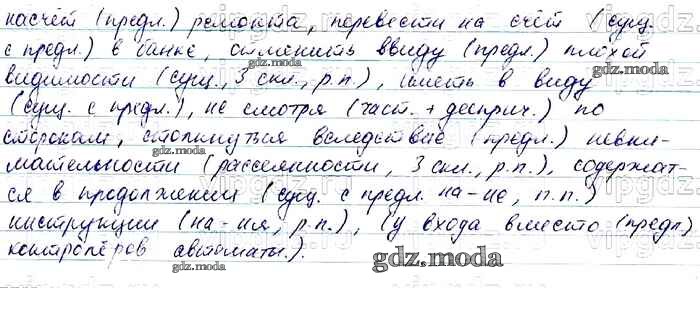 насчёт (предл.) ремонта, перевести на счёт (сущ.
с предл.) в банке, отменить ввиду (предл.) плохой
видимости (сущ., 3 скл., р.п.), иметь в виду
(сущ. с предл.), не смотря (част. + дееприч.) по
сторонам, столкнуться вследствие (предл.) невни-
мательности (рассеянности, 3 скл., р.п.), содержат-
ся в продолжении (сущ. с предл. на-ие, п.п.)
инструкции (на-ия, р.п.), (у входа вместо (предл.)
контролёров автоматы.).
gdz.moda
gdz.moda
gdz.moda
gdz.moda
gdz.moda
gdz.moda